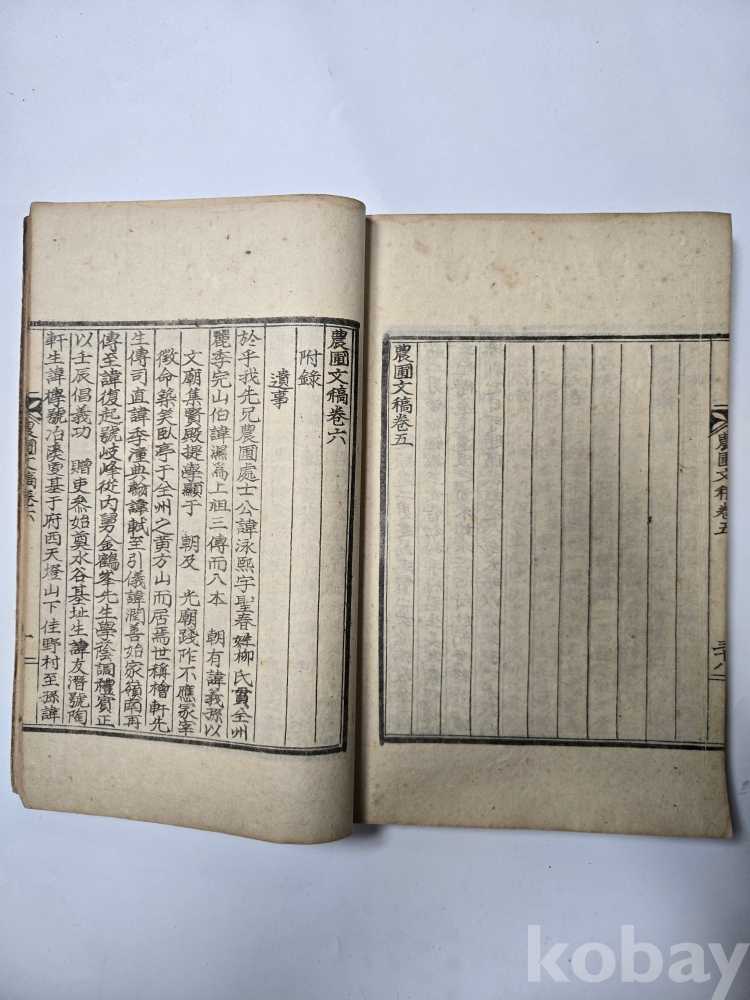 農圃文稿卷五
三十八
農圃文稿卷五
農圃文稿卷六
附錄
遺事
於乎我先兄農圃處士公諱泳熙字聖春姓柳氏貫全州
麗季完山伯諱濕爲上祖三傳而入本 朝有諱義孫以
文廟集賢殿提學顯于 朝及 光廟踐阼不應冢宰
徵命築笑臥亭于全州之黃方山而居焉世稱檜軒先
生傳司直諱季潼典翰諱軾至引儀諱潤善始家嶺南再
傳至諱復起號岐峰從內舅金鶴峯先生學蔭調禮賓正
以壬辰倡義功 贈吏參始奠水谷基址生諱友潛號陶
軒生諱 號 溪 基于府西天 山下佳野村至孫諱
農圃文稿卷六
一
kobay